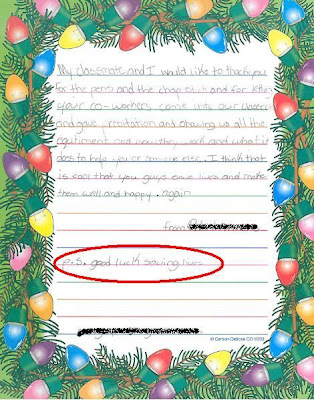 My classmate and I would like to thank you
for the pens and the chap stick and for letting
your co-workers come into our classroom
and gave presitation and showing us all the
equitment and how they work and what it
does to help you or someone else. I think that
is cool that you guys save lives and make
them well and happy. again
from
P.S. good luck saving lives
© Carson-Dellosa CD-